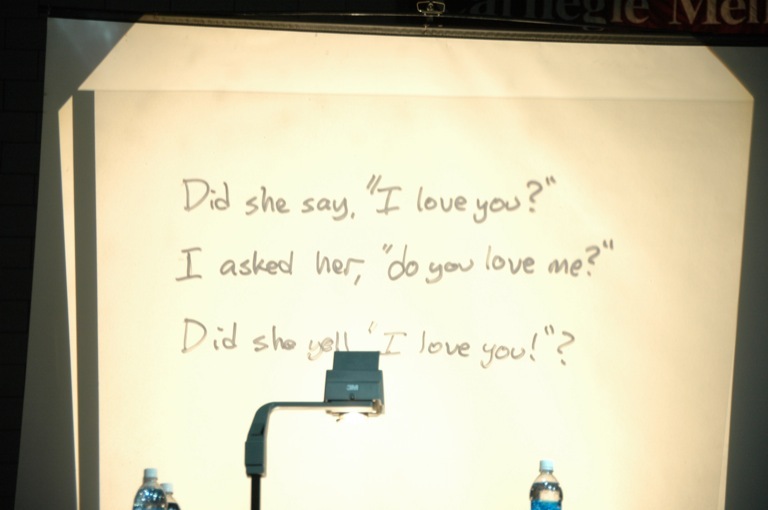 arnegie Mel
Did she say, "I love you?"
I asked her, "do you love me?"
Did she yell "I love you!"?
3M